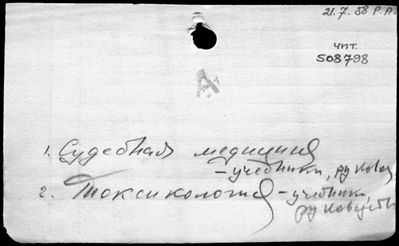 21.7.58 Р.А.
чпт.
508798
А.
1. Судебная медицина
– учебники, руковод
2. Токсикология – учебники,
руководства